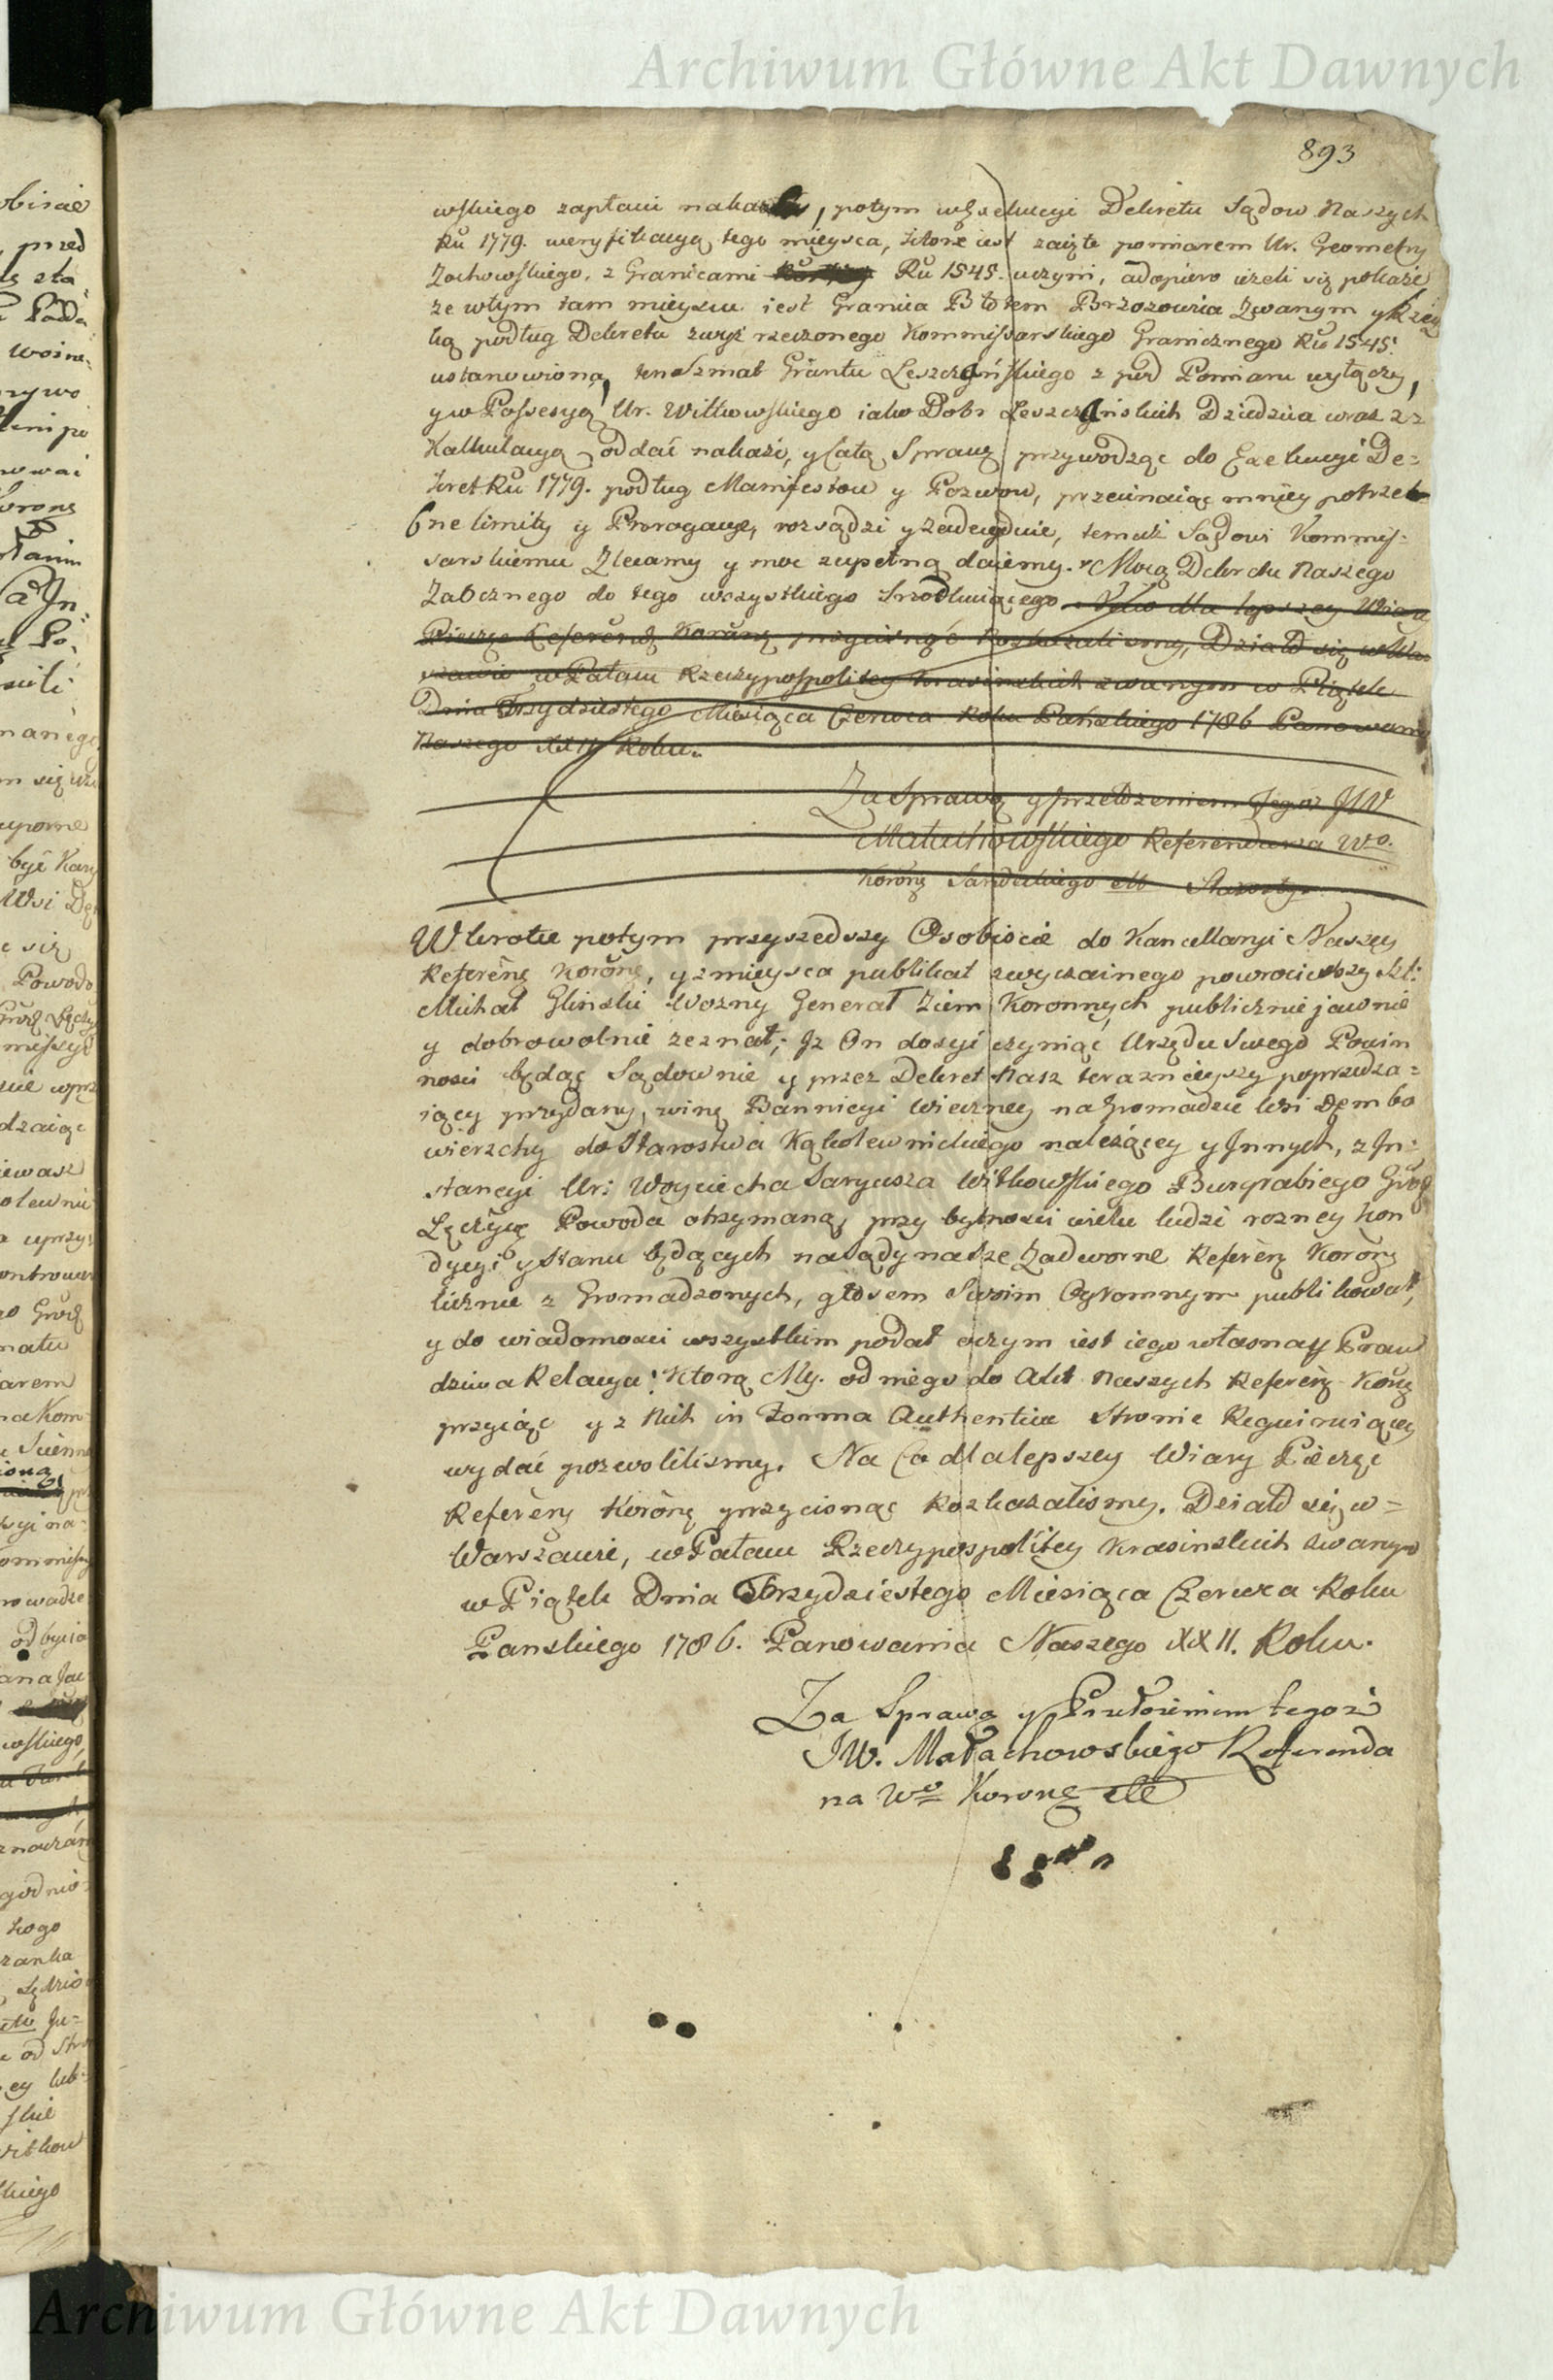 Archiwum Główne Akt Dawnych
893
wskiego zapłacić nakaże, potym w Exekucyi Dekretu Sądow Naszych
Ru 1779. weryfikacyą tego mieysca, ktore iest zaięte pomiarem Ur. Geometry
Zochowskiego, z Granicami Ru 1545. uczyni, a dopiero ieżeli się pokaże
że w tym tam mieyscu iest Granica Błotem Brzozowia Zwanym y Rzecz
ką podług Dekretu zwyż rzeczonego Kommissarskiego Granicznego Ru 1545.
ustanowiona, ten Szmat Gruntu Leszczyńskiego z pod Pomiaru wyłączy,
y w Possesyą Ur. Witkowskiego iako Dobr Leszczyńskich Dziedzica wraz z
Kalkulacyą oddać nakaże, y całą Sprawę przywodząc do Exekucyi De=
kret Ru 1779. podług Manifestow y Pozwow, przecinaiąc mniey potrzeb
bne limity y Prorogacye, rozsądzi y zadecyduie, temuż Sądowi Kommis=
sarskiemu Zlecamy y moc zupełną daiemy. Mocą Dekretu Naszego
Zaocznego do tego wszystkiego Srzodkuiącego Na Co dla lepszey Wiary
Pieczęć Referenę Koronę przycisnąć Roskazalismy, Działo się w War
szawie w Pałacu Rzeczypospolitey Krasinskich zwanym w Piątek
Dnia Trzydziestego Miesiąca Czerwca Roku Pańskiego 1786 Panowania
Naszego XXII Roku.
Za Sprawą y przełożeniem Tegoż JW
Małachowskiego Referendarza Wo.
Koronę Sandeckiego etc Starosty
W krotce potym przyszedszy Osobiscie do Kancellaryi Naszey
Referenę Koronę, y z mieysca publikat zwyczainego powrociwszy Szl:
Michał Glinski Wozny Generał Ziem Koronnych publicznie jawnie
y dobrowolnie zeznał; Jż On dosyć czyniąc Urzędu Swego Powin
nosci będąc Sądownie y przez Dekret Nasz teraznieyszy poprzedza=
iący przydany, winę Bannicyi Wieczney na Gromadzie Wsi Dembo
wierzchy do Starostwa Kąkolewnickiego należącey y Jnnych, z Jn=
stancyi Ur: Woyciecha Saryusza Witkowskiego Burgrabiego Grod
Łęczyę Powoda otrzymaną, przy bytnosci wielu ludzi rozney kon
dycyi y stanu będących na Sądy nasze Zadworne Referenę Koronę
licznie z Gromadzonych, głosem Swoim Ogromnym publikował,
y do wiadomosci wszystkim podał o czym iest iego własna y Praw
dziwa Relacya: Ktorą My. od niego do Akt Naszych Referenę Koronę
przyiąc y z Nich in Forma Authentica Stronie Requiruiącey
wydać pozwolilismy. Na Co dla lepszey Wiary Pieczęć
Referenę Koronę przycisnąc Rozkazalismy. Działo się w=
Warszawie, w Pałacu Rzeczypospolitey Krasinskich zwanym
w Piątek Dnia Trzydziestego Miesiąca Czerwca Roku
Panskiego 1786. Panowania Naszego XXII. Roku.
Za Sprawą y Przełożeniem tegoż
JW. Małachowskiego Referenda
na Wo Koronę etc
Archiwum Główne Akt Dawnych